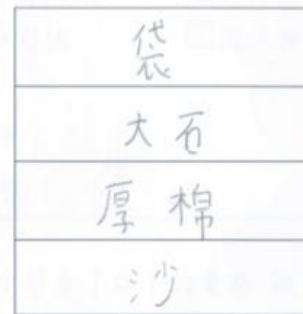 袋
大石
厚棉
沙